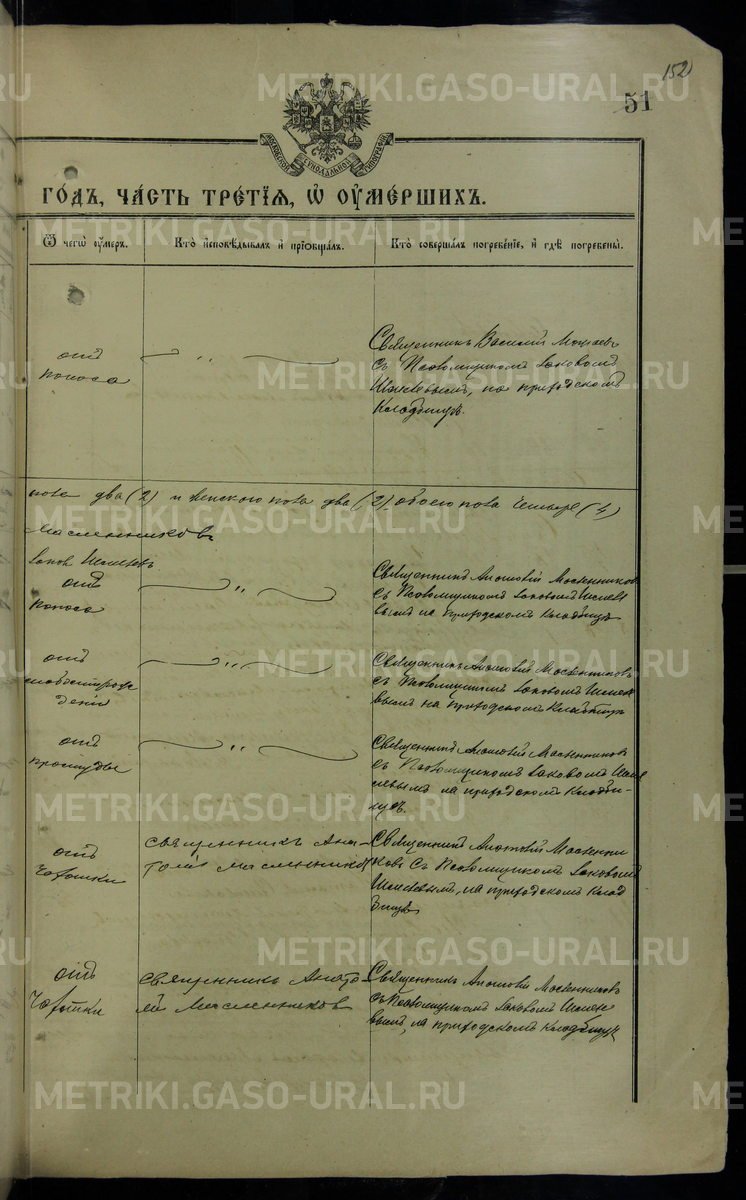 152
51
МОСКОВСКОЙ СУНОДАЛЬНОЙ ТИПОГРАФІИ
ГОДЪ, ЧАСТЬ ТРЕТІѦ, Ѡ ОУМЕРШИХЪ.
Ѿ чегѡ оумеръ.
Кто исповѣдывалъ и прїобщалъ.
Кто совершалъ погребенїе, и гдѣ погребены.
отъ
поноса
Священникъ Василій
съ Псаломщикомъ Іаковомъ
на приходскомъ
Кладбищѣ.
пола два (2) и женскаго пола два (2) обоего пола четыре (4)
Масленниковъ
Іаковъ
отъ
поноса
Священникъ Анатолій Масленниковъ
съ Псаломщикомъ Іаковомъ
на приходскомъ Кладбищѣ
отъ
Священникъ Анатолій Масленниковъ
съ Псаломщикомъ Іаковомъ
на приходскомъ Кладбищѣ
отъ
простуды
Священникъ Анатолій Масленниковъ
съ Псаломщикомъ Іаковомъ
на приходскомъ Кладби-
щѣ.
отъ
Чахотки
священникъ Ана-
толій Масленниковъ
Священникъ Анатолій Масленни
ковъ съ Псаломщикомъ Іаковомъ
на приходскомъ Клад
бищѣ
отъ
Чахотки
священникъ Анато-
лій Масленниковъ
Священникъ Анатолій Масленниковъ
съ Псаломщикомъ Іаковомъ
на приходскомъ Кладбищѣ
METRIKI.GASO-URAL.RU